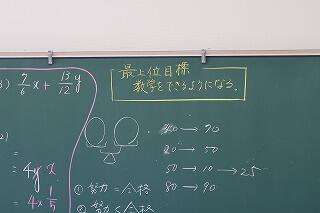 最上位目標
数学をできるようになる。
7/6 x + 13/12 y
2)
=
= 4y x
= 4x 1/5
→ 70
20 → 50
50 → 10 → 25
80 → 90
① 努力 = 合格
② 努力 < 合格